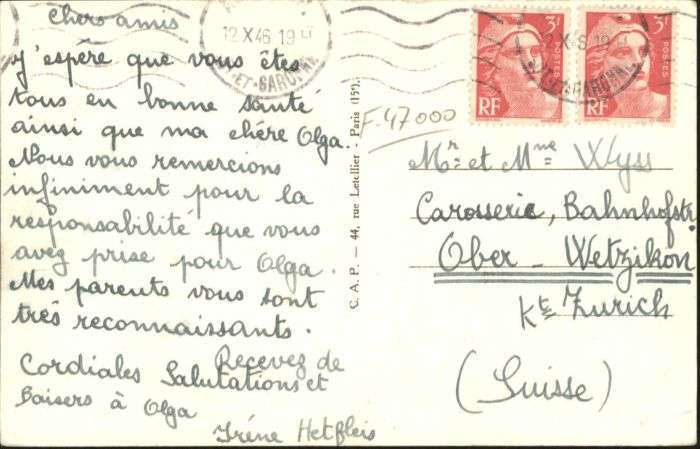 Chers amis
J'espère que vous êtes
tous en bonne santé
ainsi que ma chère Olga.
Nous vous remercions
infiniment pour la
responsabilité que vous
avez prise pour Olga.
Mes parents vous sont
très reconnaissants.
Recevez de
Cordiales Salutations et
baisers à Olga
Irène Hetfleis
C. A. P. — 44, rue Letellier - Paris (15e).
12 X 46 19 H
ET-GARONNE
3F
POSTES
RF
3F
POSTES
RF
F. 47 000
Mr et Mme Wyss
Carosserie, Bahnhofstr.
Ober - Wetzikon
Kt Zurich
(Suisse)